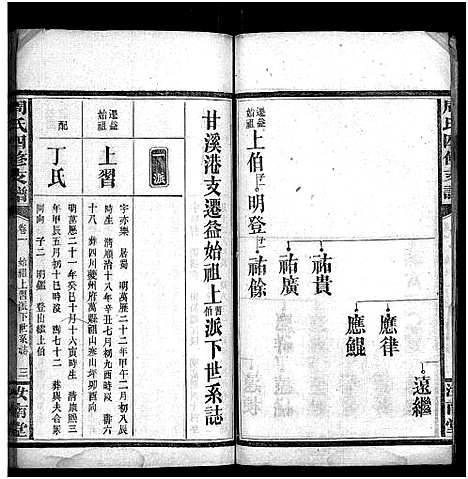 周氏四修支譜
汝南堂
遷益始祖
上伯
明登
祐貴
祐廣
祐餘
應律
應鯤
遠繼
甘溪港支遷益始祖上習伯派下世系誌
派
遷益始祖
上習
字亦樂 居蜀 明萬歷二十二年甲午二月初八辰
時生 清順治十八年辛丑七月初九酉時歿 壽六
十八 葬四川夔州府萬縣祖山寨山坪卯酉向
配
丁氏
明萬歷二十一年癸巳十月十六寅時生 清康熙三
年甲辰五月初十巳時歿 壽七十二 葬與夫合冢
同向 子二 明鑑 登出繼上伯
周氏四修支譜
卷一
始祖上習派下世系誌
三
汝南堂